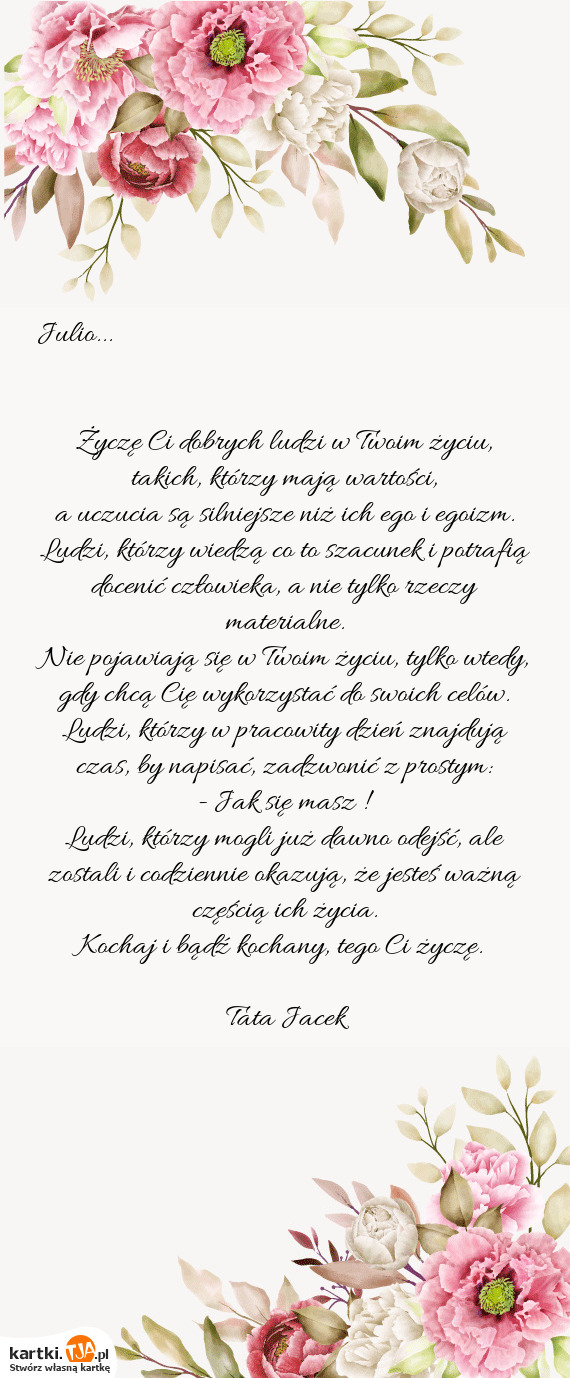 Julio...
Życzę Ci dobrych ludzi w Twoim życiu,
takich, którzy mają wartości,
a uczucia są silniejsze niż ich ego i egoizm.
Ludzi, którzy wiedzą co to szacunek i potrafią
docenić człowieka, a nie tylko rzeczy
materialne.
Nie pojawiają się w Twoim życiu, tylko wtedy,
gdy chcą Cię wykorzystać do swoich celów.
Ludzi, którzy w pracowity dzień znajdują
czas, by napisać, zadzwonić z prostym:
- Jak się masz !
Ludzi, którzy mogli już dawno odejść, ale
zostali i codziennie okazują, że jesteś ważną
częścią ich życia.
Kochaj i bądź kochany, tego Ci życzę.
Tata Jacek
kartki.TJA.pl
Stwórz własną kartkę